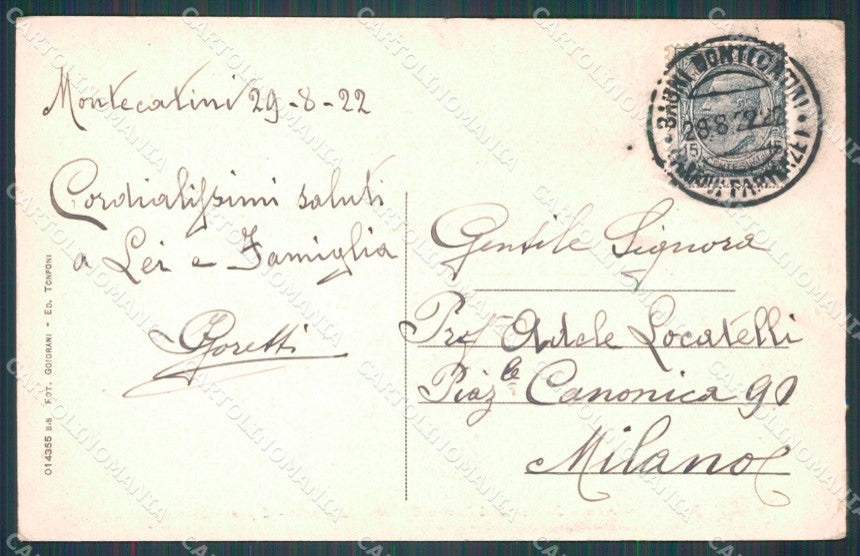 Montecatini 29-8-22
Cordialissimi saluti
a Lei e Famiglia
Goretti
Gentile Signora
Prof Adele Locatelli
Piaz.le Canonica 91
Milano
014355 BIS FOT. GOIORANI - ED. TONFONI
BAGNI MONTECATINI
28.8.22
15 15
CARTOLINOMANIA